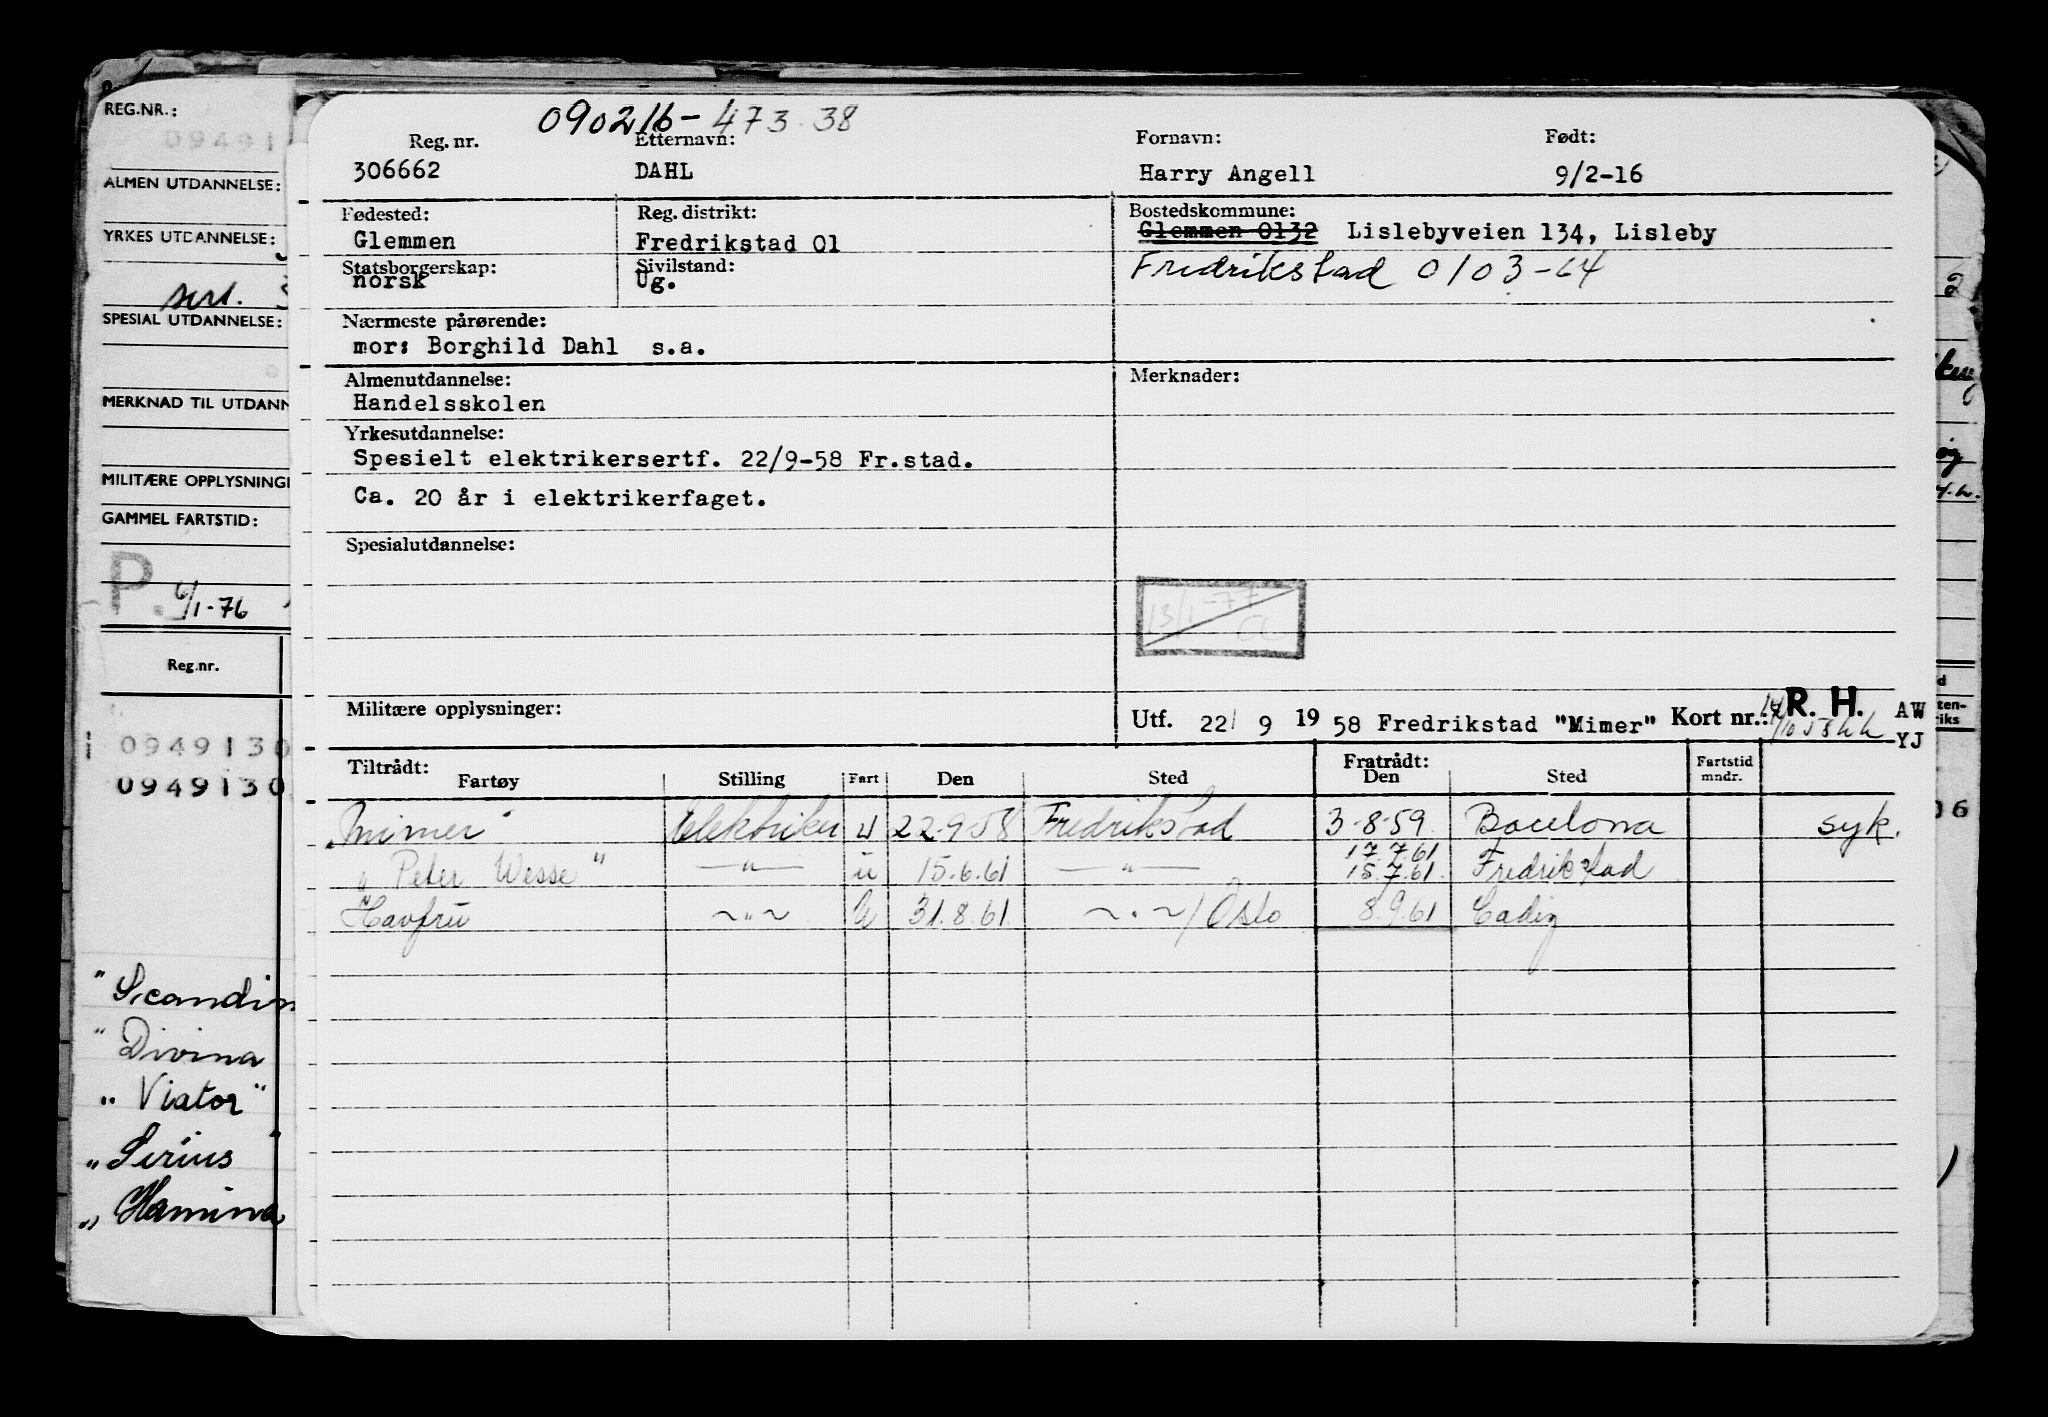 090216-473.38
Reg. nr. Etternavn: Fornavn: Født:
306662 DAHL Harry Angell 9/2-16
Fødested: Reg. distrikt: Bostedskommune:
Glemmen Fredrikstad 01 Glemmen 0132 Lislebyveien 134, Lisleby
Statsborgerskap: Sivilstand: Fredrikstad 0103-64
norsk Ug.
Nærmeste pårørende:
mor: Borghild Dahl s.a.
Almenutdannelse: Merknader:
Handelsskolen
Yrkesutdannelse:
Spesielt elektrikersertf. 22/9-58 Fr.stad.
Ca. 20 år i elektrikerfaget.
Spesialutdannelse:
13/1-77
CL
Militære opplysninger: Utf. 22/ 9 19 58 Fredrikstad "Mimer" Kort nr.: R. H. AW
YJ
Tiltrådt: Fratrådt:
Fartøy Stilling Fart Den Sted Den Sted Fartstid mndr.
"Mimer" Elektriker u 22-9-58 Fredrikstad 3-8-59 Bacelona syk.
17.7.61
"Peter Wesse" —"— u 15.6.61 —"— 15.7.61. Fredrikstad
Havfru ~"~ U 31.8.61. ~"~/Oslo 8.9.61 Cadiz
REG.NR.:
09491
ALMEN UTDANNELSE:
YRKES UTDANNELSE:
sert.
SPESIAL UTDANNELSE:
MERKNAD TIL UTDANN
MILITÆRE OPPLYSNINGE
GAMMEL FARTSTID:
P. 6/1-76
Reg.nr.
0949130
0949130
"Scandin
"Divina
"Viator"
"Sirius"
"Hamina